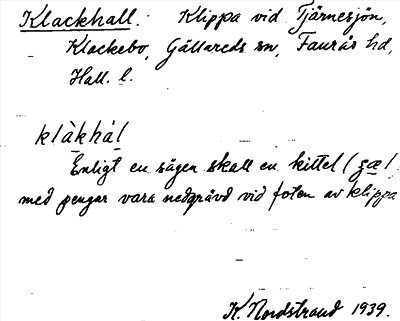 Klackhall. Klippa vid Tjärnesjön,
Klockebo, Gällareds sn, Faurås hd,
Hall. l.
klàkhàl
Enligt en sägen skall en kittel (
med pengar vara nedgrävd vid foten av klippa
K. Nordstrand 1939.